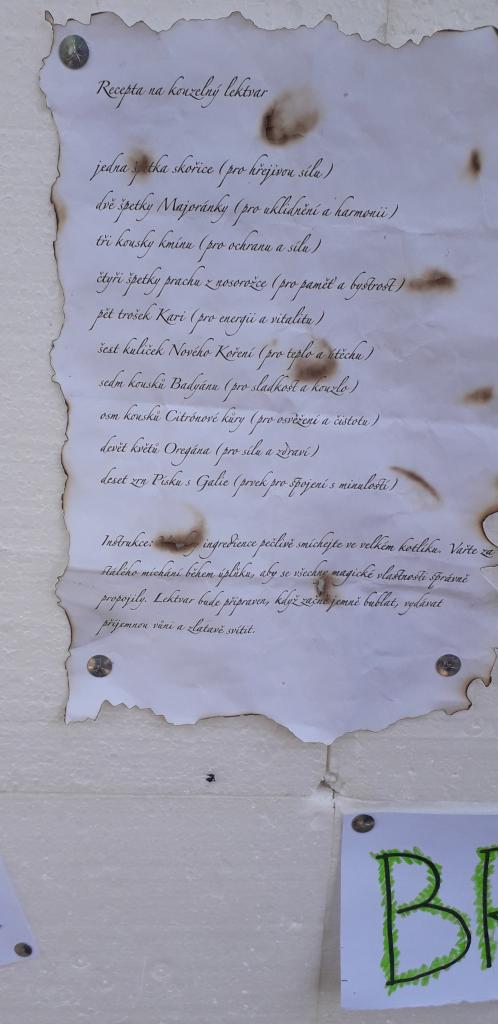 Recepta na kouzelný lektvar
jedna špetka skořice (pro hřejivou sílu)
dvě špetky Majoránky (pro uklidnění a harmonii)
tři kousky kmínu (pro ochranu a sílu)
čtyři špetky prachu z nosorožce (pro paměť a bystrost)
pět trošek Kari (pro energii a vitalitu)
šest kuliček Nového Koření (pro teplo a útěchu)
sedm kousků Badyánu (pro sladkost a kouzlo)
osm kousků Citrónové kůry (pro osvěžení a čistotu)
devět květů Oregána (pro sílu a zdraví)
deset zrn Písku s Galie (prvek pro spojení s minulostí)
Instrukce: ingredience pečlivě smíchejte ve velkém kotlíku. Vařte za
stálého míchání během úplňku, aby se všechny magické vlastnosti správně
propojily. Lektvar bude připraven, když začne jemně bublat, vydávat
příjemnou vůni a zlatavě svítit.